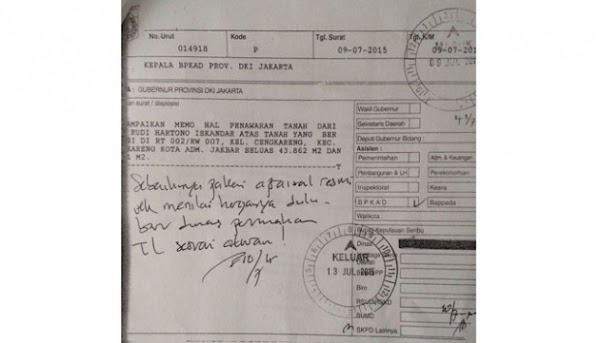 No. Urut Kode Tgl. Surat Tgl. K/M
014918 P 09-07-2015 09-07-2015
KEPALA BPKAD PROV. DKI JAKARTA
A : GUBERNUR PROVINSI DKI JAKARTA
surat / disposisi
AMPAIKAN MEMO HAL PENAWARAN TANAH DARI
RUDI HARTONO ISKANDAR ATAS TANAH YANG BER
DI RT 002/RW 007, KEL. CENGKARENG, KEC.
KARENG KOTA ADM. JAKBAR SELUAS 43.862 M2 DAN
M2.
menilai harganya dulu
baru dinas perumahan
TL sesuai
Wakil Gubernur
Sekretaris Daerah
Deputi Gubernur Bidang :
Asisten :
Pemerintahan Adm. & Keuangan
Pembangunan & LH Perekonomian
Inspektorat Kesra
BPKAD Bappeda
Walikota
Bupati Kepulauan Seribu
Dinas
KELUAR
13 JUL 2015
Biro
BUMD
SKPD Lainnya